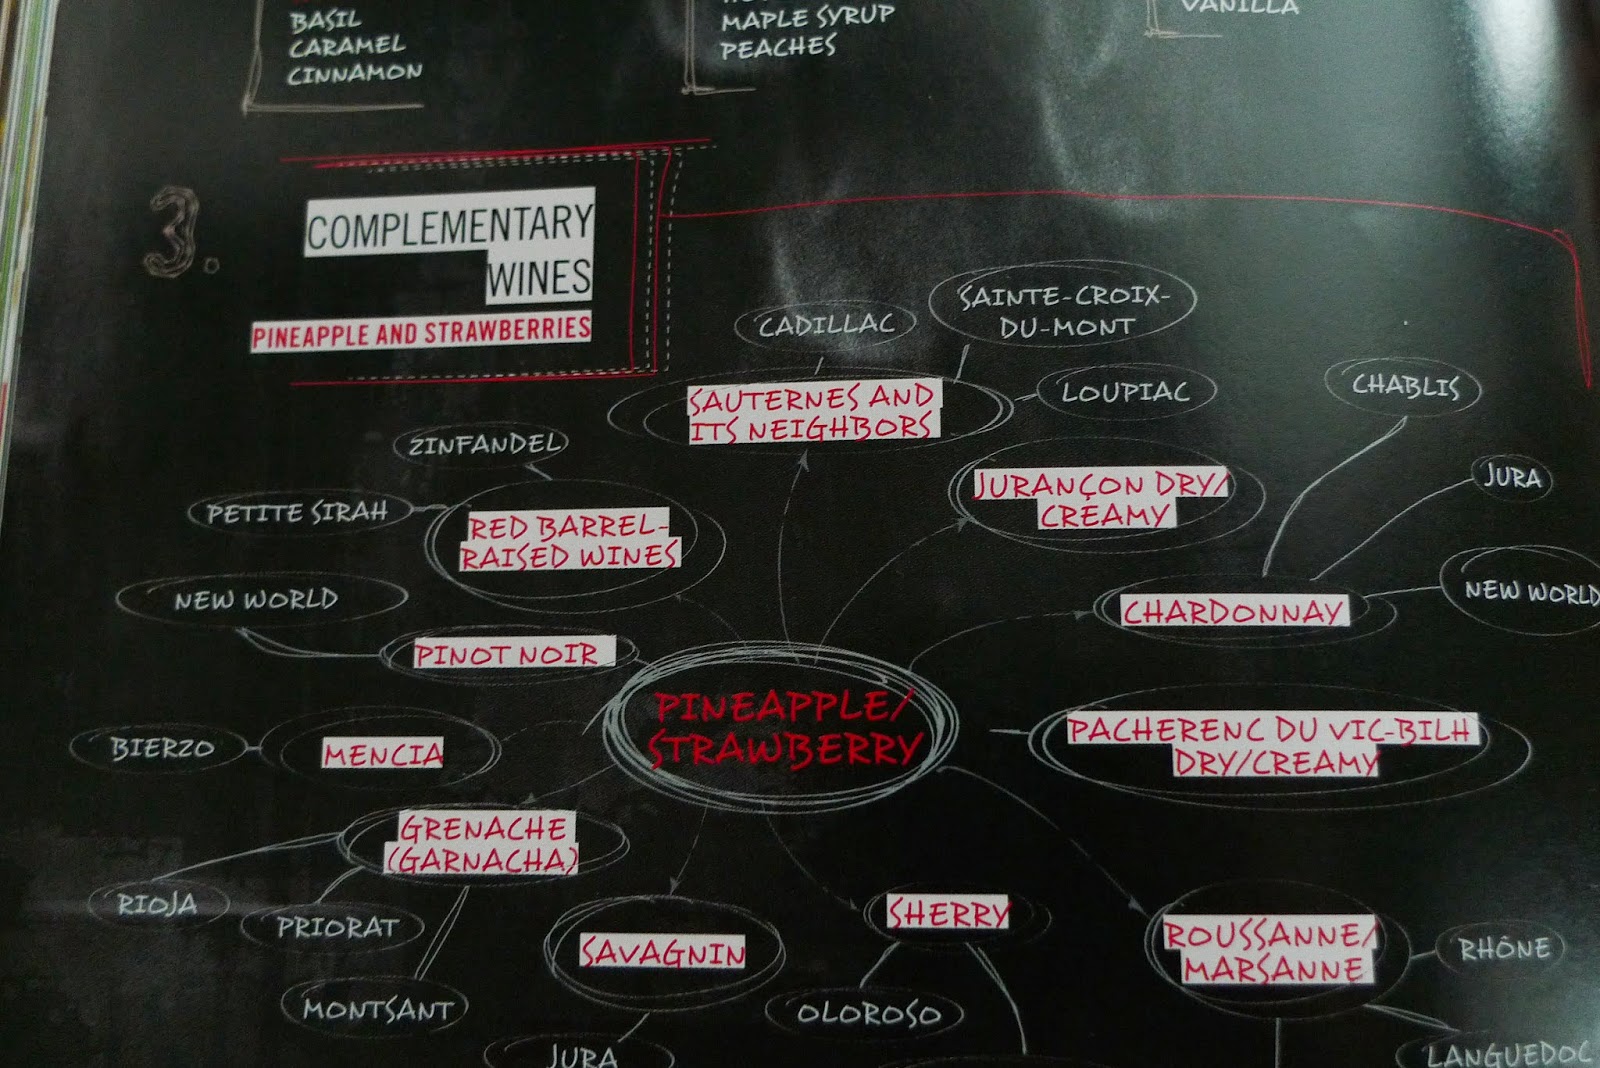 BASIL
CARAMEL
CINNAMON
MAPLE SYRUP
PEACHES
VANILLA
3.
COMPLEMENTARY
WINES
PINEAPPLE AND STRAWBERRIES
CADILLAC
SAINTE-CROIX-
DU-MONT
SAUTERNES AND
ITS NEIGHBORS
LOUPIAC
CHABLIS
ZINFANDEL
JURANÇON DRY/
CREAMY
JURA
PETITE SIRAH
RED BARREL-
RAISED WINES
NEW WORLD
CHARDONNAY
NEW WORLD
PINOT NOIR
PINEAPPLE/
STRAWBERRY
PACHERENC DU VIC-BILH
DRY/CREAMY
BIERZO
MENCIA
GRENACHE
(GARNACHA)
RIOJA
PRIORAT
MONTSANT
SAVAGNIN
JURA
SHERRY
OLOROSO
ROUSSANNE/
MARSANNE
RHÔNE
LANGUEDOC